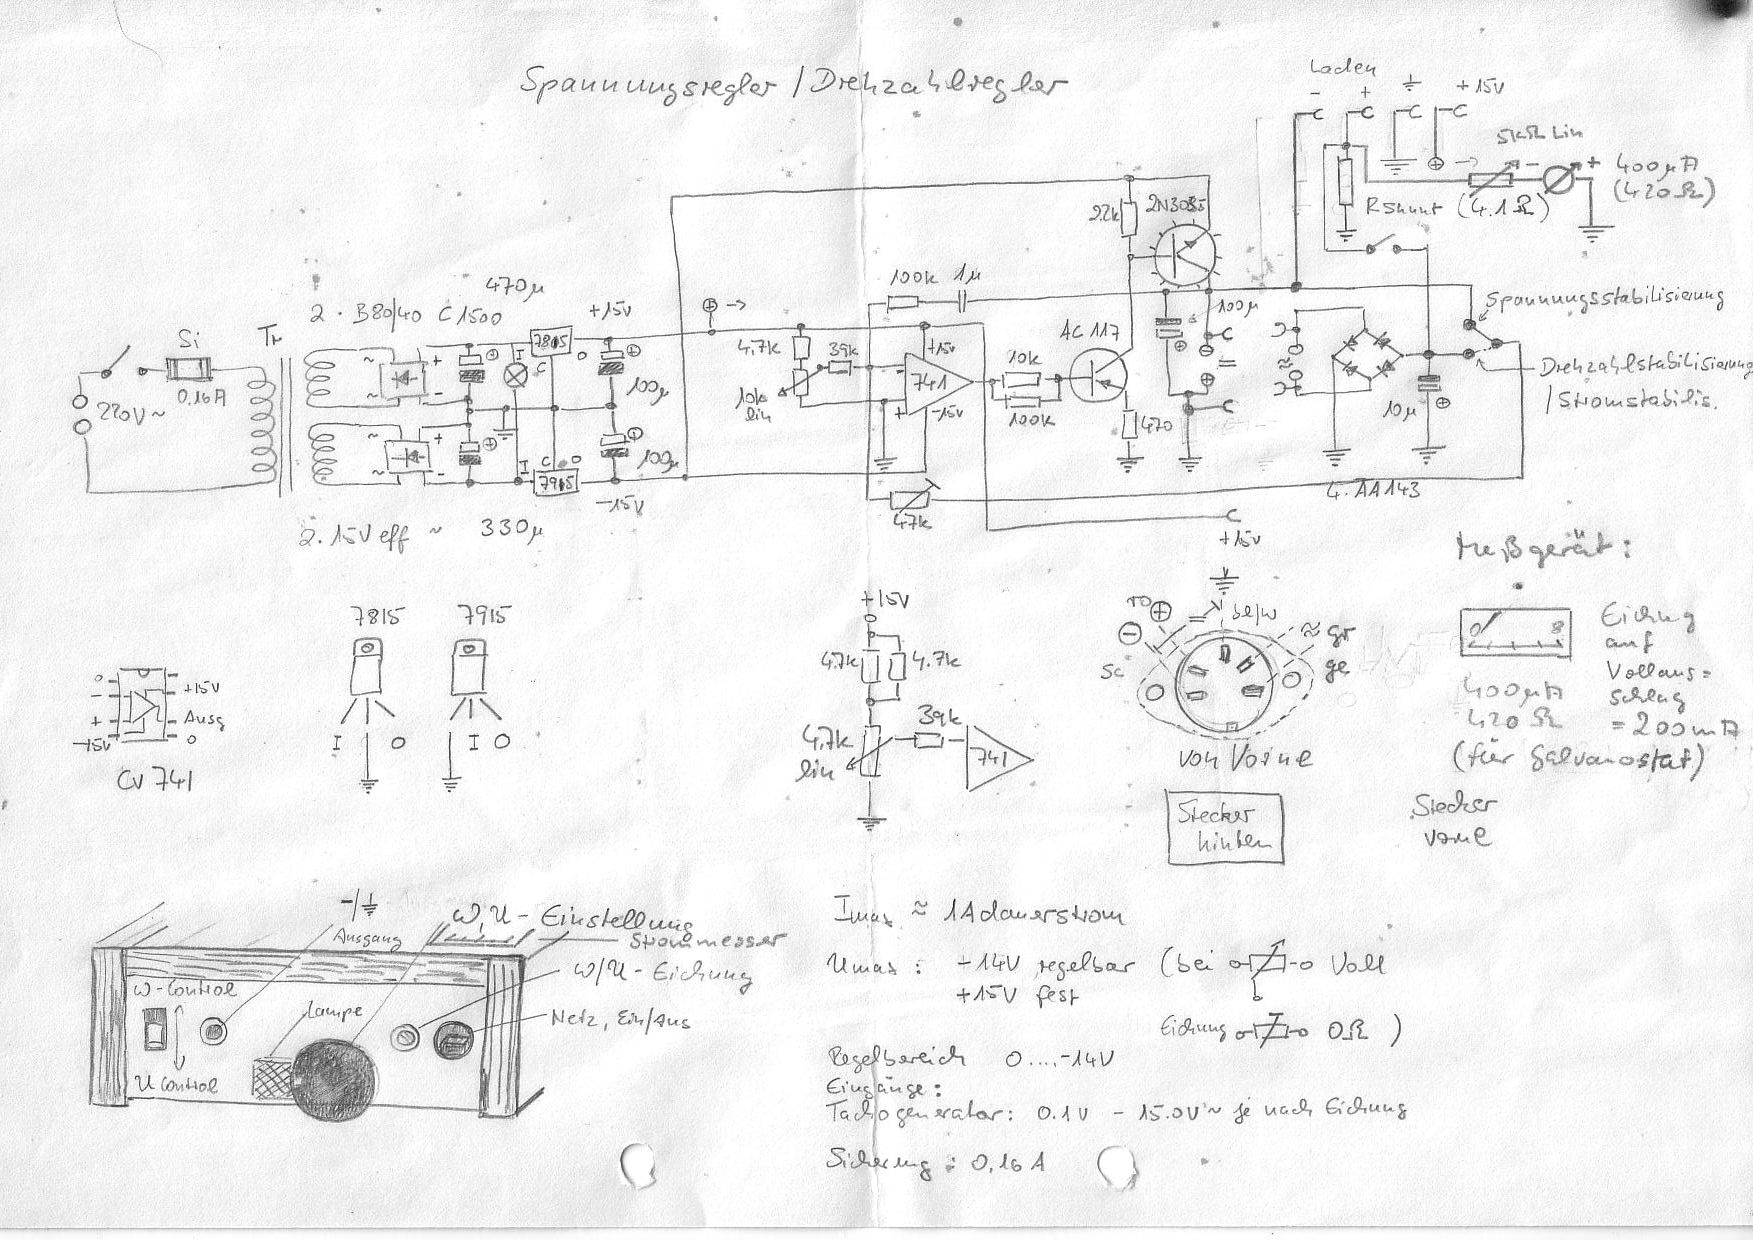 Spannungsregler / Drehzahlregler
Laden
- + +15V
5kΩ Lin
- +
400µA
(420Ω)
RShunt (4.1Ω)
2.2k
2N3055
100k 1µ
470µ
2 · B80/40 C1500
+15V
Si
Tr
7815
I O
C
0.16A
220V~
100µ
4,7k
39k
10k
lin
+15V
741
-15V
10k
100k
AC 117
470
100µ
Spannungsstabilisierung
Drehzahlstabilisierung
/ Stromstabilis.
10µ
100µ
C O
I
7915
-15V
47k
4. AA143
2. 15V eff ~ 330µ
+15V
Meßgerät:
7815 7915
+15V
ro
bl/w
gr
ge
sc
0 8
Eichung
auf
Vollaus=
schlag
= 200mA
400µA
420Ω
(für Galvanostat)
4.7k 4.7k
39k
4,7k
lin
741
von Vorne
0
- +15V
+ Ausg
-15V 0
CV 741
I O I O
Stecker
hinten
Stecker
vorne
-/
Ausgang
ω, U - Einstellung
Strommesser
ω/U - Eichung
ω-Control
Lampe
Netz, Ein/Aus
U Control
Imax ≈ 1A dauerstrom
Umax : +14V regelbar (bei Voll
+15V fest
Eichung 0Ω )
Regelbereich 0....-14V
Eingänge:
Tachogenerator: 0.1V - 15.0V~ je nach Eichung
Sicherung : 0,16 A